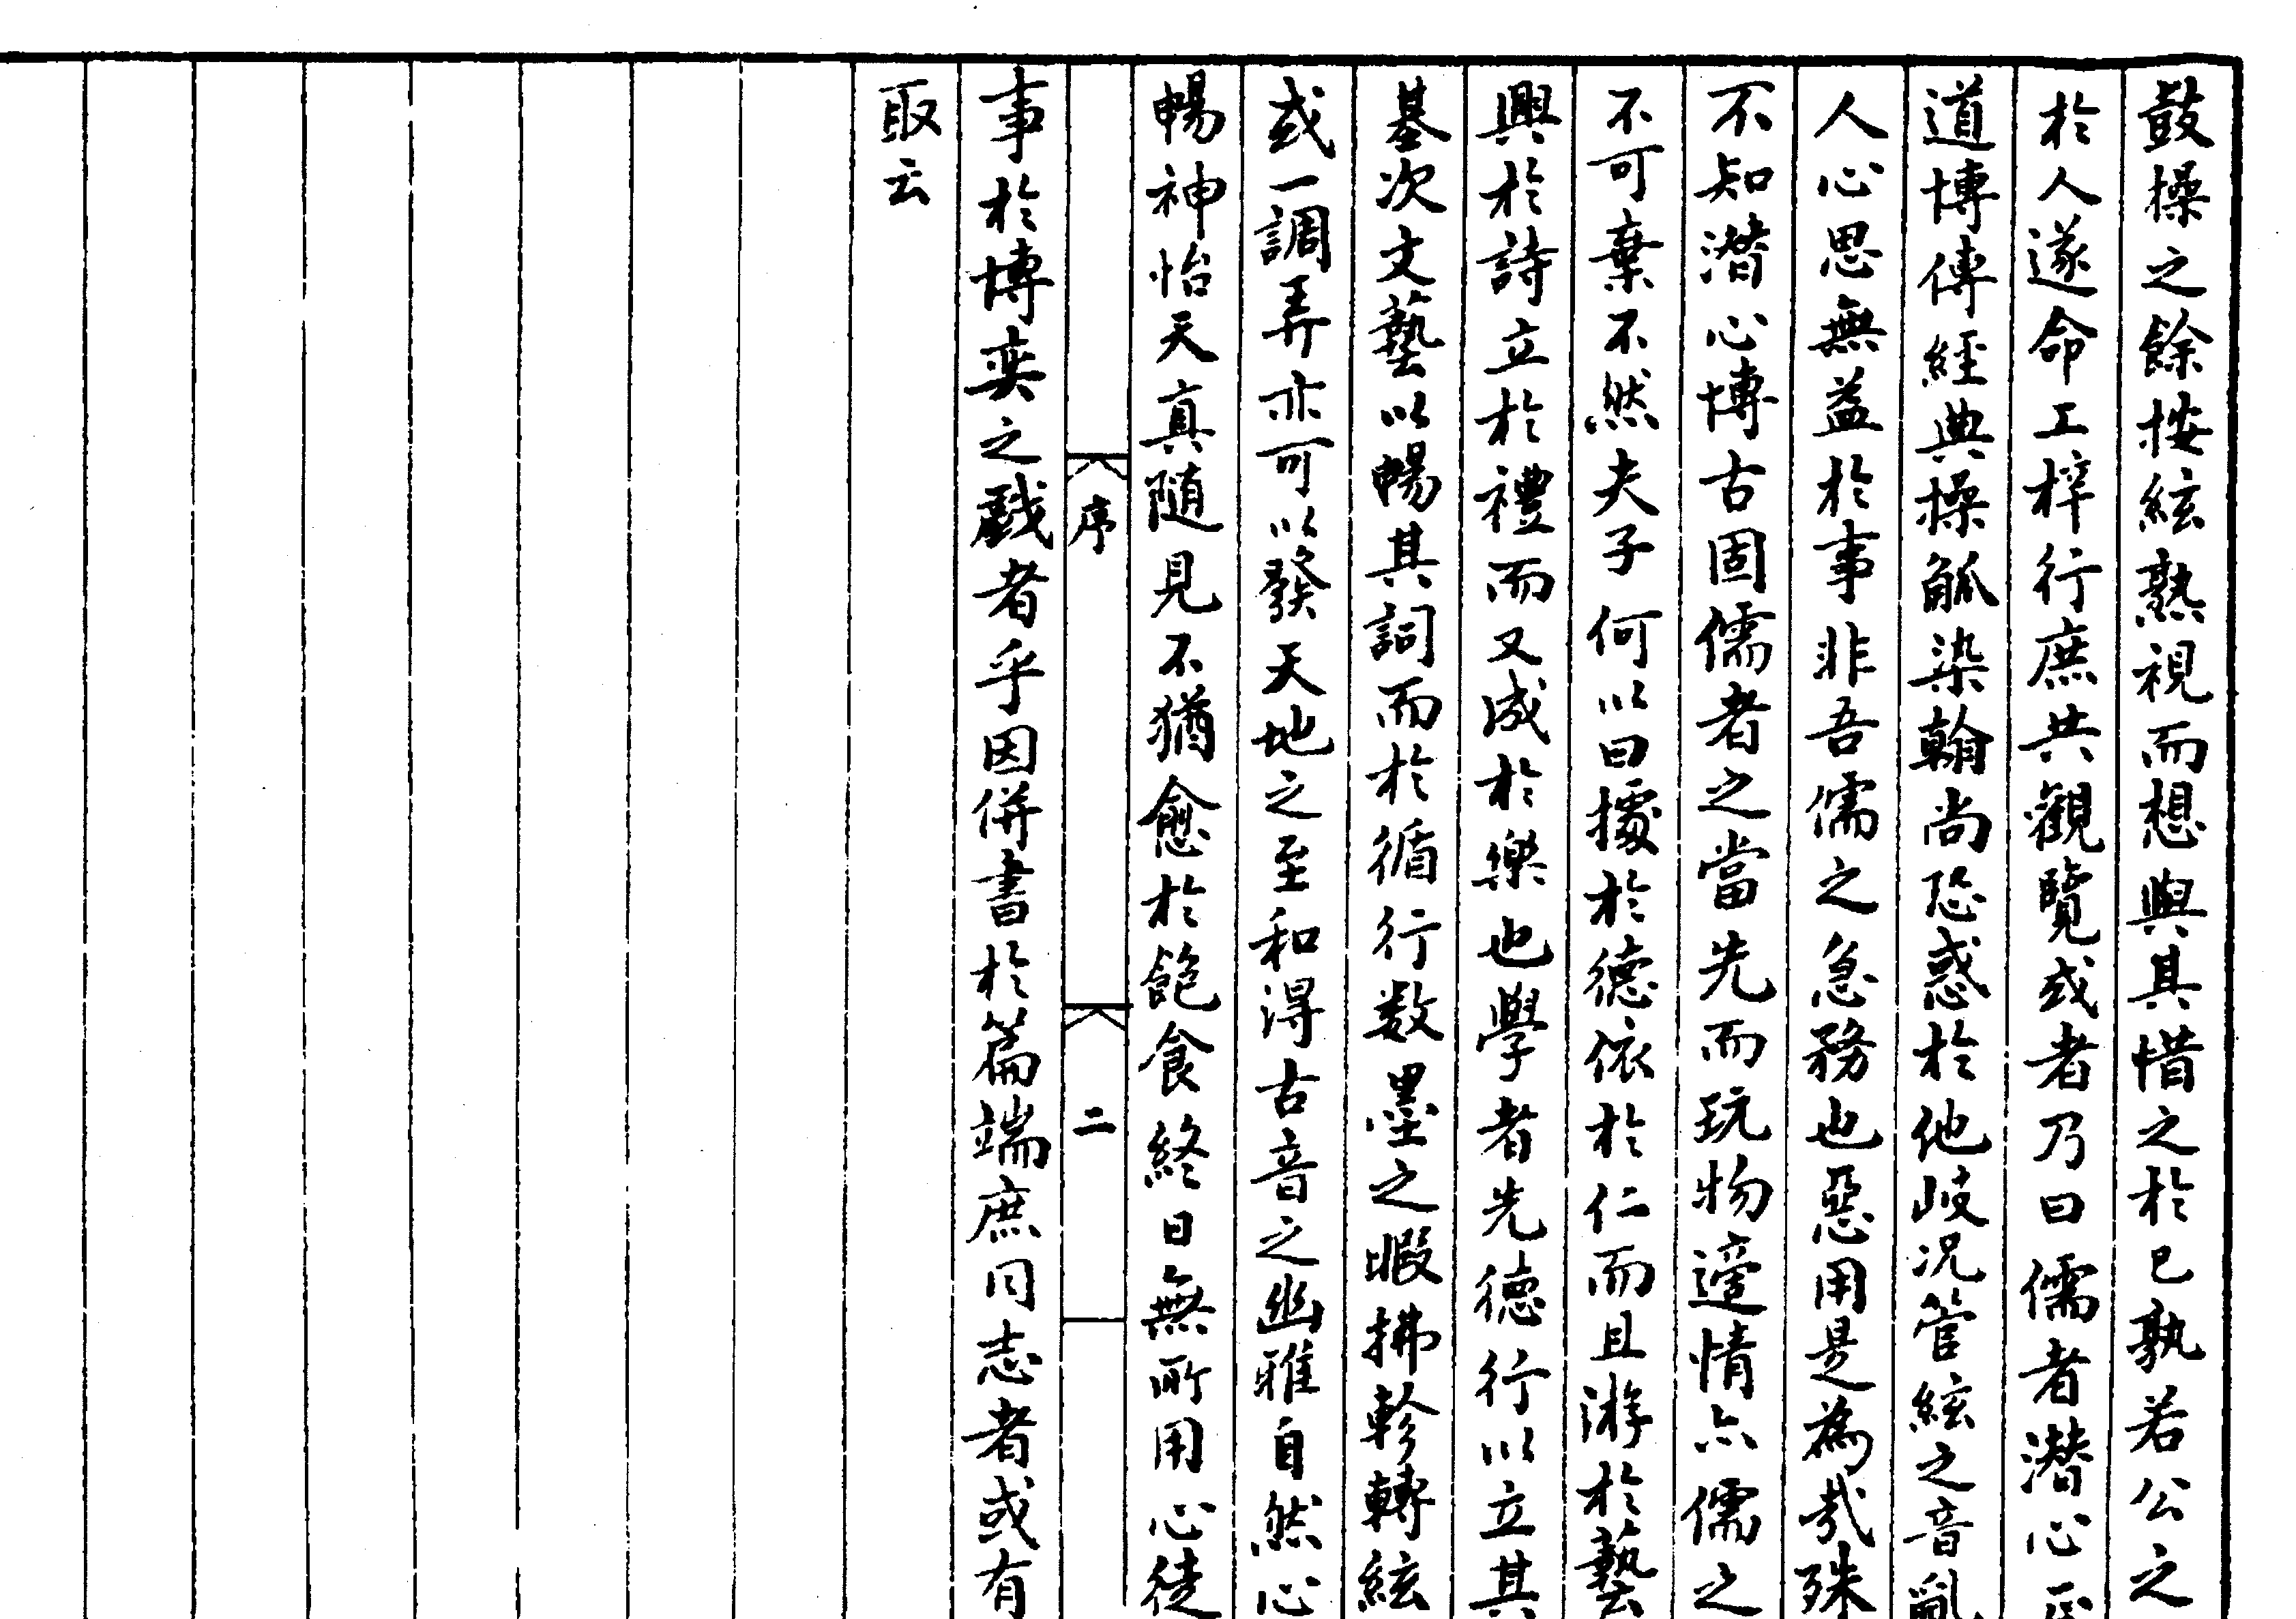 鼓操之餘按絃熟視而想與其惜之於已孰若公之
於人遂命工梓行庶共觀覽或者乃曰儒者潛心
道博傳經典操觚染翰尚恐惑於他岐况管絃之音亂
人心思無益於事非吾儒之急務也惡用是為㦲殊
不知潛心博古固儒者之當先而玩物適情亦儒之
不可棄不然夫子何以曰據於德依於仁而且游於藝
興於詩立於禮而又成於樂也學者先德行以立其
基次文藝以暢其詞而於循行数墨之暇拂軫轉絃
或一調弄亦可以發天地之至和得古音之幽雅自然心
暢神怡天真随見不猶愈於飽食終日無所用心徒
序
二
事於博奕之戲者乎因併書於篇端庶同志者或有
取云